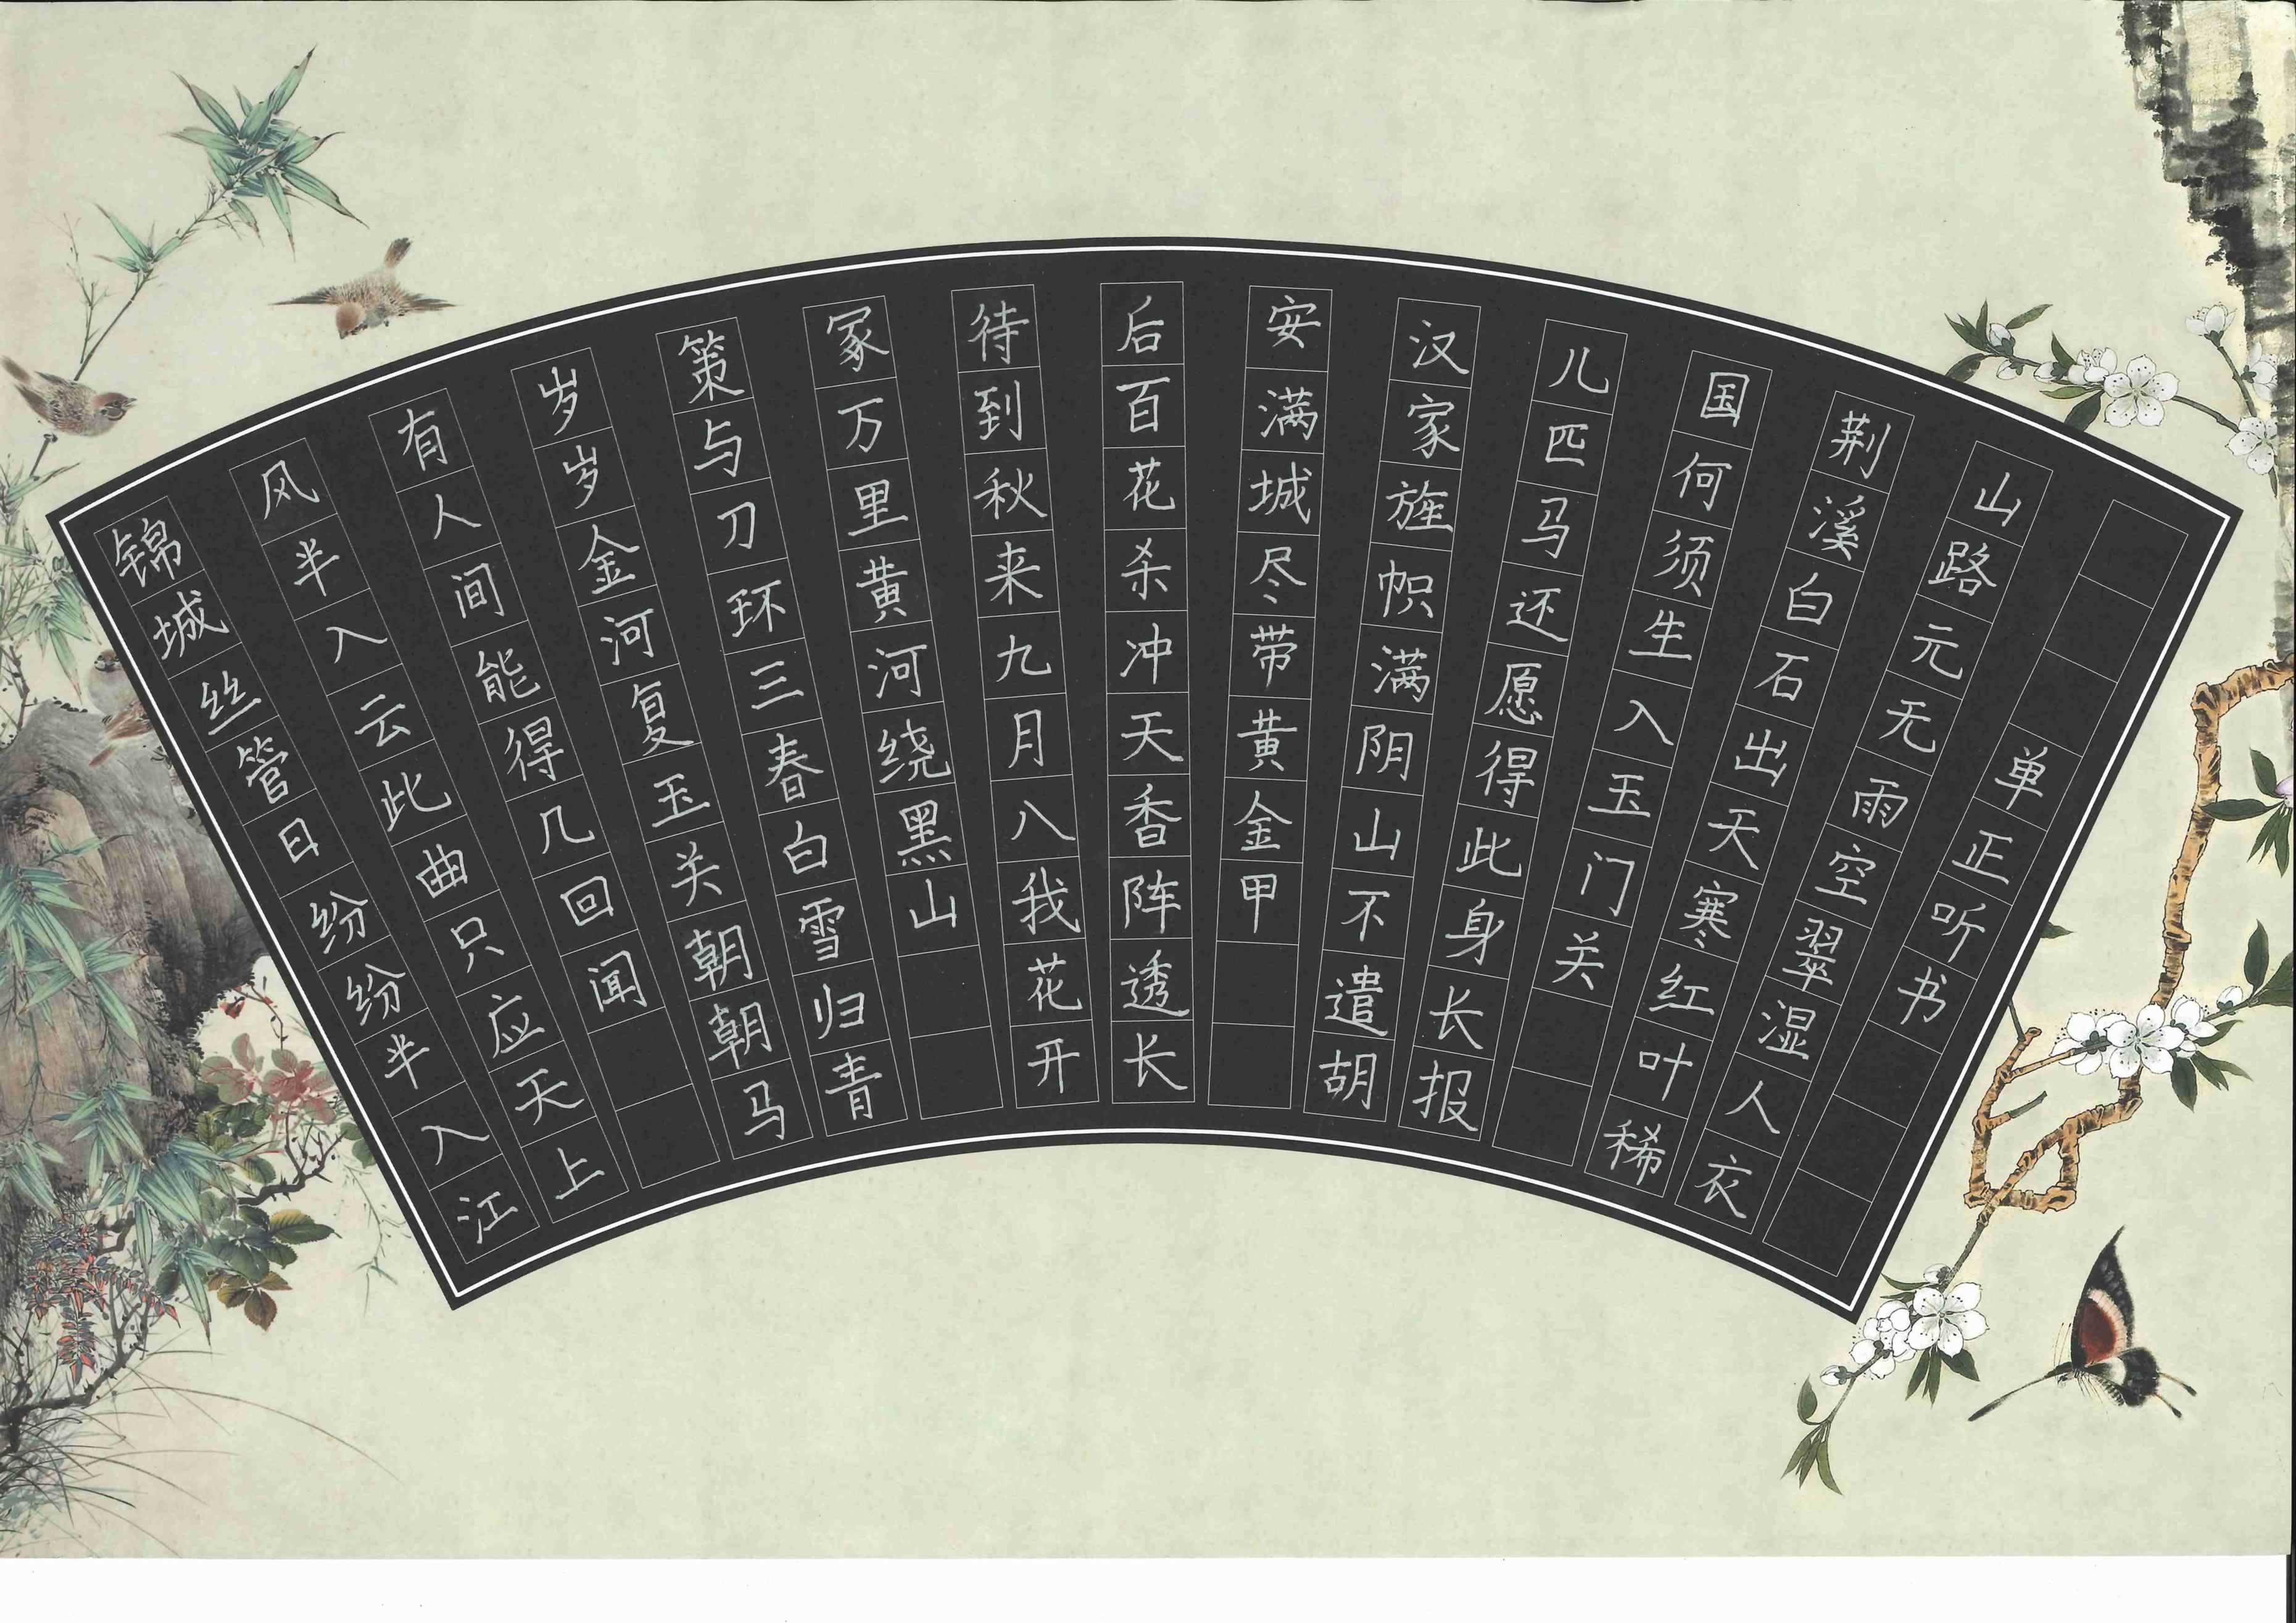 锦城丝管日纷纷半入江
风半入云此曲只应天上
有人间能得几回闻
岁岁金河复玉关朝朝马
策与刀环三春白雪归青
冢万里黄河绕黑山
待到秋来九月八我花开
后百花杀冲天香阵透长
安满城尽带黄金甲
汉家旌帜满阴山不遣胡
儿匹马还愿得此身长报
国何须生入玉门关
荆溪白石出天寒红叶稀
山路元无雨空翠湿人衣
单正听书